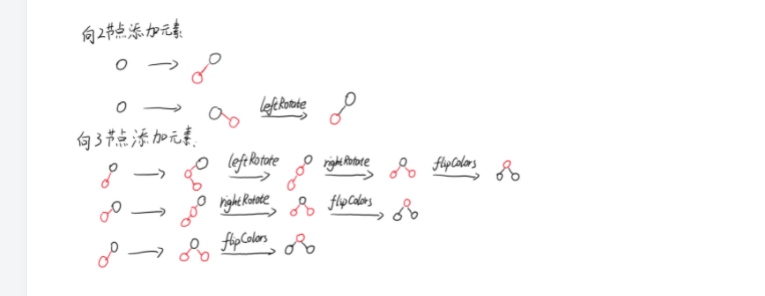 向2节点添加元素
leftRotate
向3节点添加元素.
leftRotate rightRotate flipColors
rightRotate flipColors
flipColors